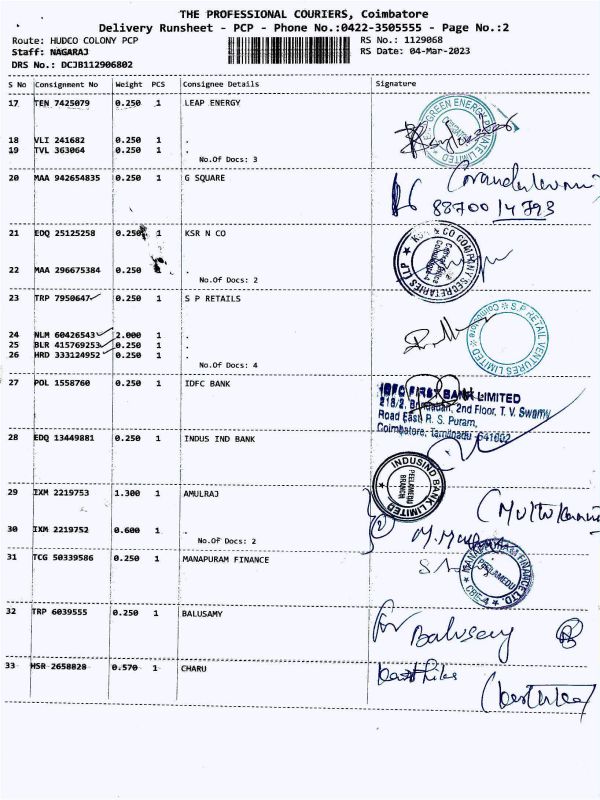 THE PROFESSIONAL COURIERS, Coimbatore
Delivery Runsheet - PCP - Phone No.:0422-3505555 - Page No.:2
Route: HUDCO COLONY PCP RS No.: 1129068
Staff: NAGARAJ RS Date: 04-Mar-2023
DRS No.: DCJB112906802
S No Consignment No Weight PCS Consignee Details Signature
17 TEN 7425079 0.250 1 LEAP ENERGY
18 VLI 241682 0.250 1 .
19 TVL 363064 0.250 1 .
No.Of Docs: 3
20 MAA 942654835 0.250 1 G SQUARE
88700 14793
21 EDQ 25125258 0.250 1 KSR N CO
KSR & CO COMPANY SECRETARIES LLP
22 MAA 296675384 0.250 1 .
No.Of Docs: 2
23 TRP 7950647 0.250 1 S P RETAILS
S.P RETAIL VENTURES LIMITED
24 NLM 60426543 2.000 1 .
25 BLR 415769253 0.250 1 .
26 HRD 333124952 0.250 1 .
No.Of Docs: 4
27 POL 1558760 0.250 1 IDFC BANK
IDFC FIRST BANK LIMITED
2nd Floor, T. V. Swamy
Road East, R. S. Puram,
Coimbatore, Tamilnadu - 641002
28 EDQ 13449881 0.250 1 INDUS IND BANK
INDUSIND BANK LIMITED
PEELAMEDU BRANCH
29 IXM 2219753 1.300 1 AMULRAJ
30 IXM 2219752 0.600 1 .
No.Of Docs: 2
31 TCG 50339586 0.250 1 MANAPURAM FINANCE
PEELAMEDU
CBE-4
32 TRP 6039555 0.250 1 BALUSAMY
for Balusamy
33 HSR 2658828 0.570 1 CHARU